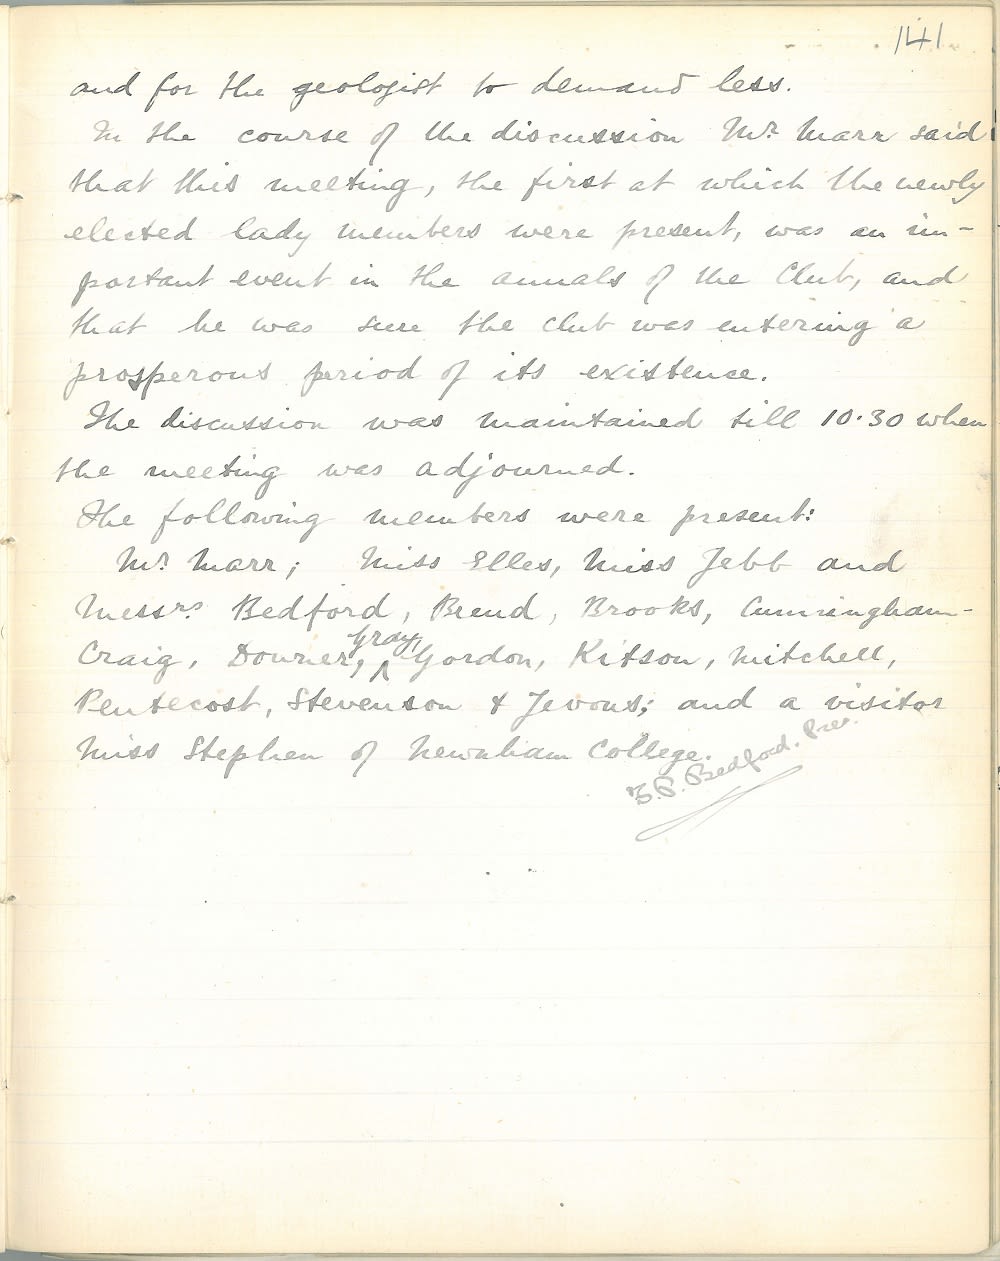 141
and for the geologist to demand less.
In the course of the discussion Mr. Marr said
that this meeting, the first at which the newly
elected lady members were present, was an im-
portant event in the annals of the Club, and
that he was sure the club was entering a
prosperous period of its existence.
The discussion was maintained till 10.30 when
the meeting was adjourned.
The following members were present:
Mr. Marr; Miss Elles, Miss Jebb and
Messrs. Bedford, Brend, Brooks, Cunningham-
Craig, Downer, Gray, Gordon, Kitson, Mitchell,
Pentecost, Stevenson & Jevons; and a visitor
Miss Stephen of Newnham College.
F.P. Bedford. Pres.